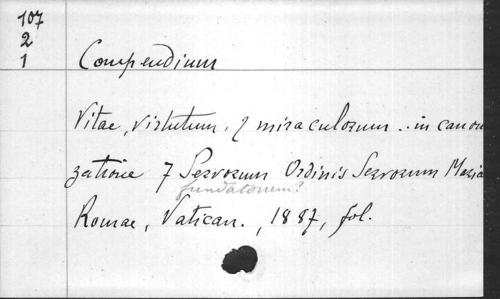 107
2
1
Compendium
Vitae, virtutum, & miraculorum .. in canoni
zatione 7 Servorum Ordinis Servorum Maria
fundatorum?
Romae, Vatican., 1887, fol.